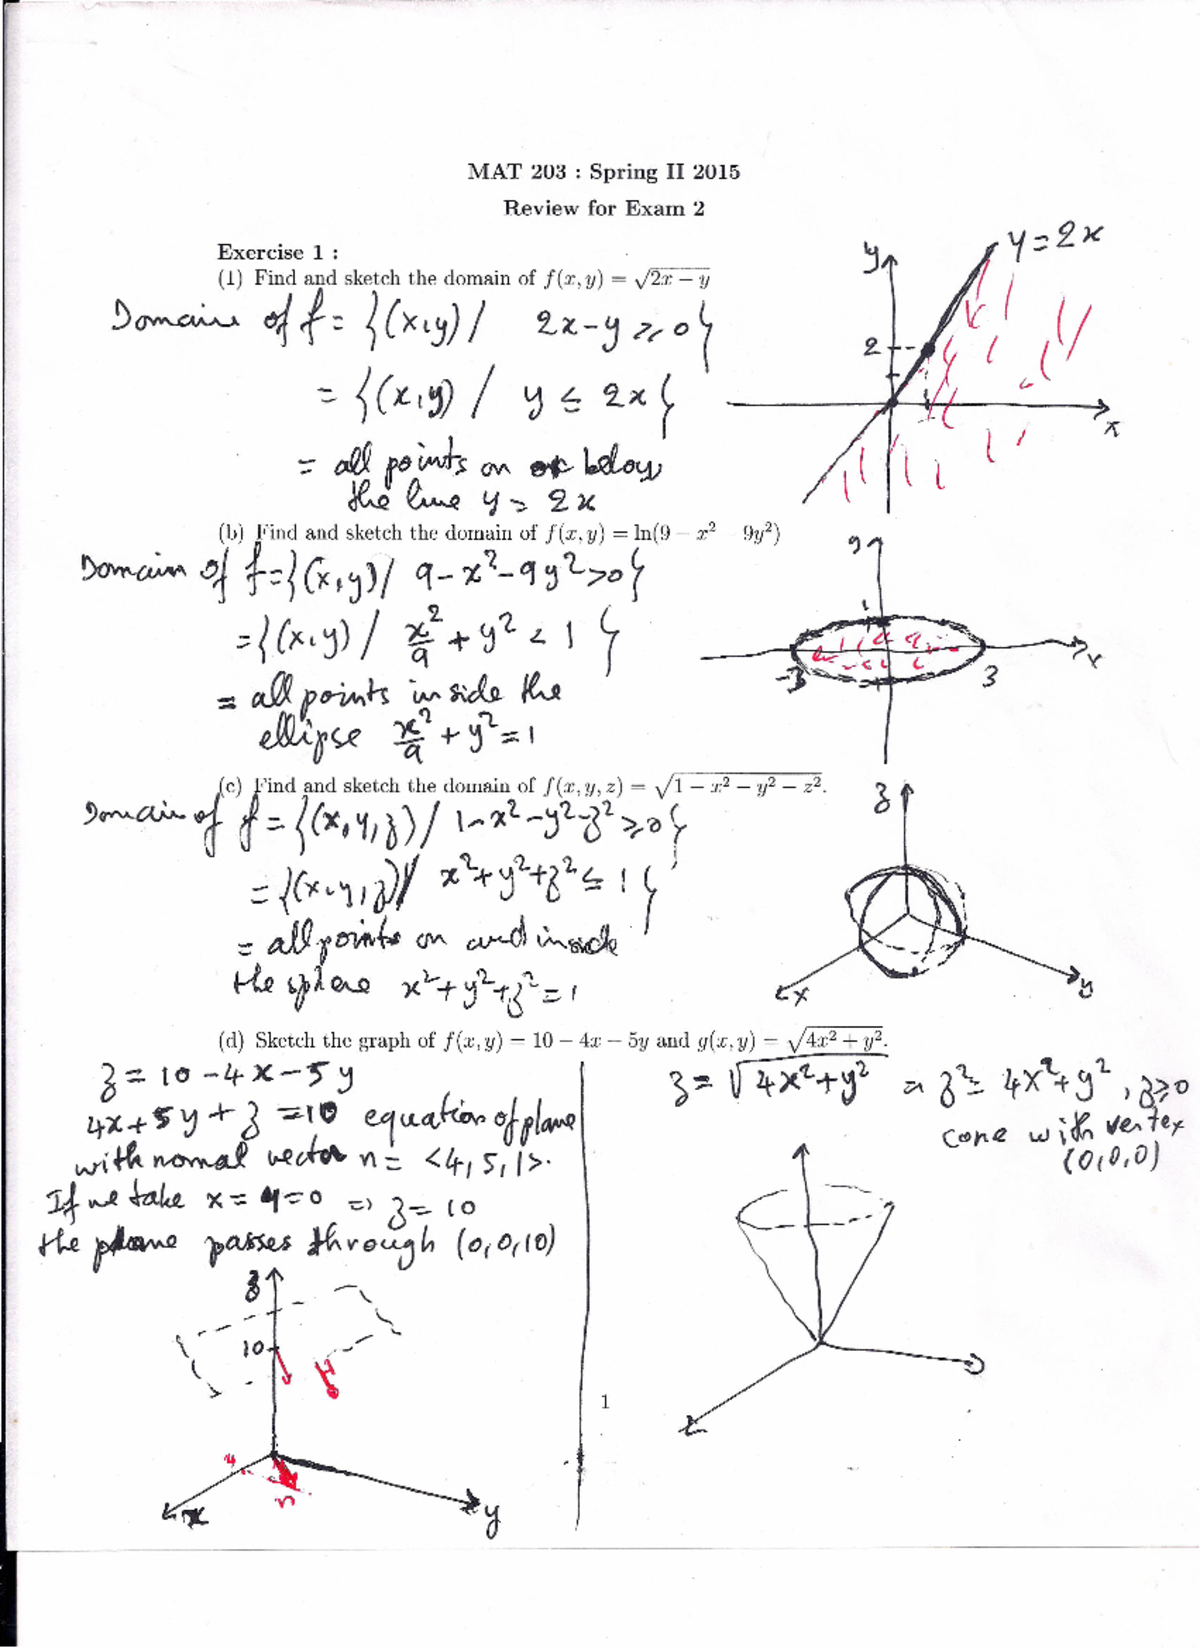 MAT 203 : Spring II 2015
Review for Exam 2
Exercise 1 :
(1) Find and sketch the domain of f(x, y) = √2x − y
Domain of f = {(x,y) / 2x-y ≥ 0}
= {(x,y) / y ≤ 2x}
= all points on or below
the line y = 2x
y
y = 2x
2
x
(b) Find and sketch the domain of f(x, y) = ln(9 − x² 9y²)
Domain of f = {(x,y) / 9-x²-9y² > 0}
= {(x,y) / x²/9 + y² < 1}
= all points inside the
ellipse x²/9 + y² = 1
y
1
-3
3
x
(c) Find and sketch the domain of f(x, y, z) = √1 − x² − y² − z².
Domain of f = {(x,y,z) / 1-x²-y²-z² ≥ 0}
= {(x,y,z) / x²+y²+z² ≤ 1}
= all points on and inside
the sphere x²+y²+z² = 1
z
x
y
(d) Sketch the graph of f(x, y) = 10 − 4x − 5y and g(x, y) = √4x² + y².
z = 10 -4x -5y
4x+5y+z = 10 equation of plane
with normal vector n = <4,5,1>.
If we take x = y = 0 => z = 10
the plane passes through (0,0,10)
z
10
4
n
x
y
z = √4x²+y² => z² = 4x²+y², z≥0
cone with vertex
(0,0,0)
1